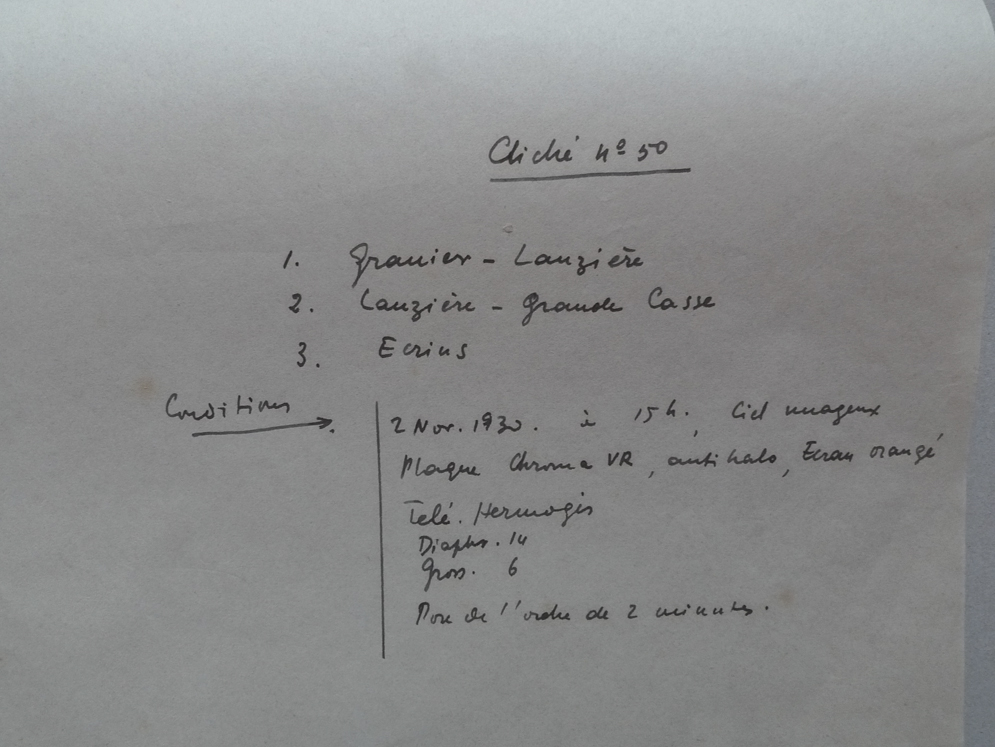 Cliché nº 50
1. Granier - Lauzière
2. Lauzière - Grande Casse
3. Ecrins
Conditions
2 Nov. 1930. à 15 h. Ciel nuageux
Plaque Chroma VR, antihalo, Ecran orangé
Télé. Hermagis
Diaphr. 14
Gross. 6
Pose de l'ordre de 2 minutes.